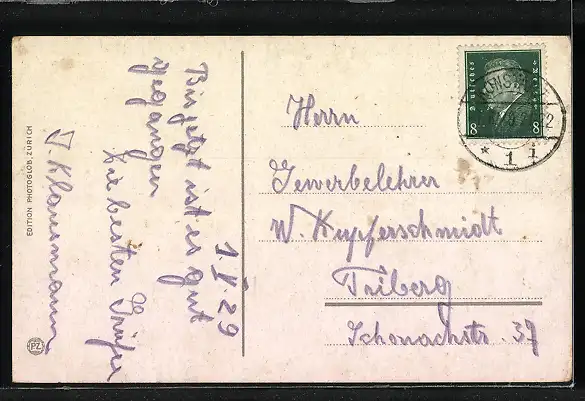 1. V 29
Bis jetzt ist es gut
gegangen
Die besten Grüße
J. Klausmann
EDITION PHOTOGLOB, ZÜRICH
PZ
Deutsches Reich
8 8
KONST
* 1 z
Herrn
Gewerbelehrer
W. Kupferschmidt
Triberg
Schonachstr. 37